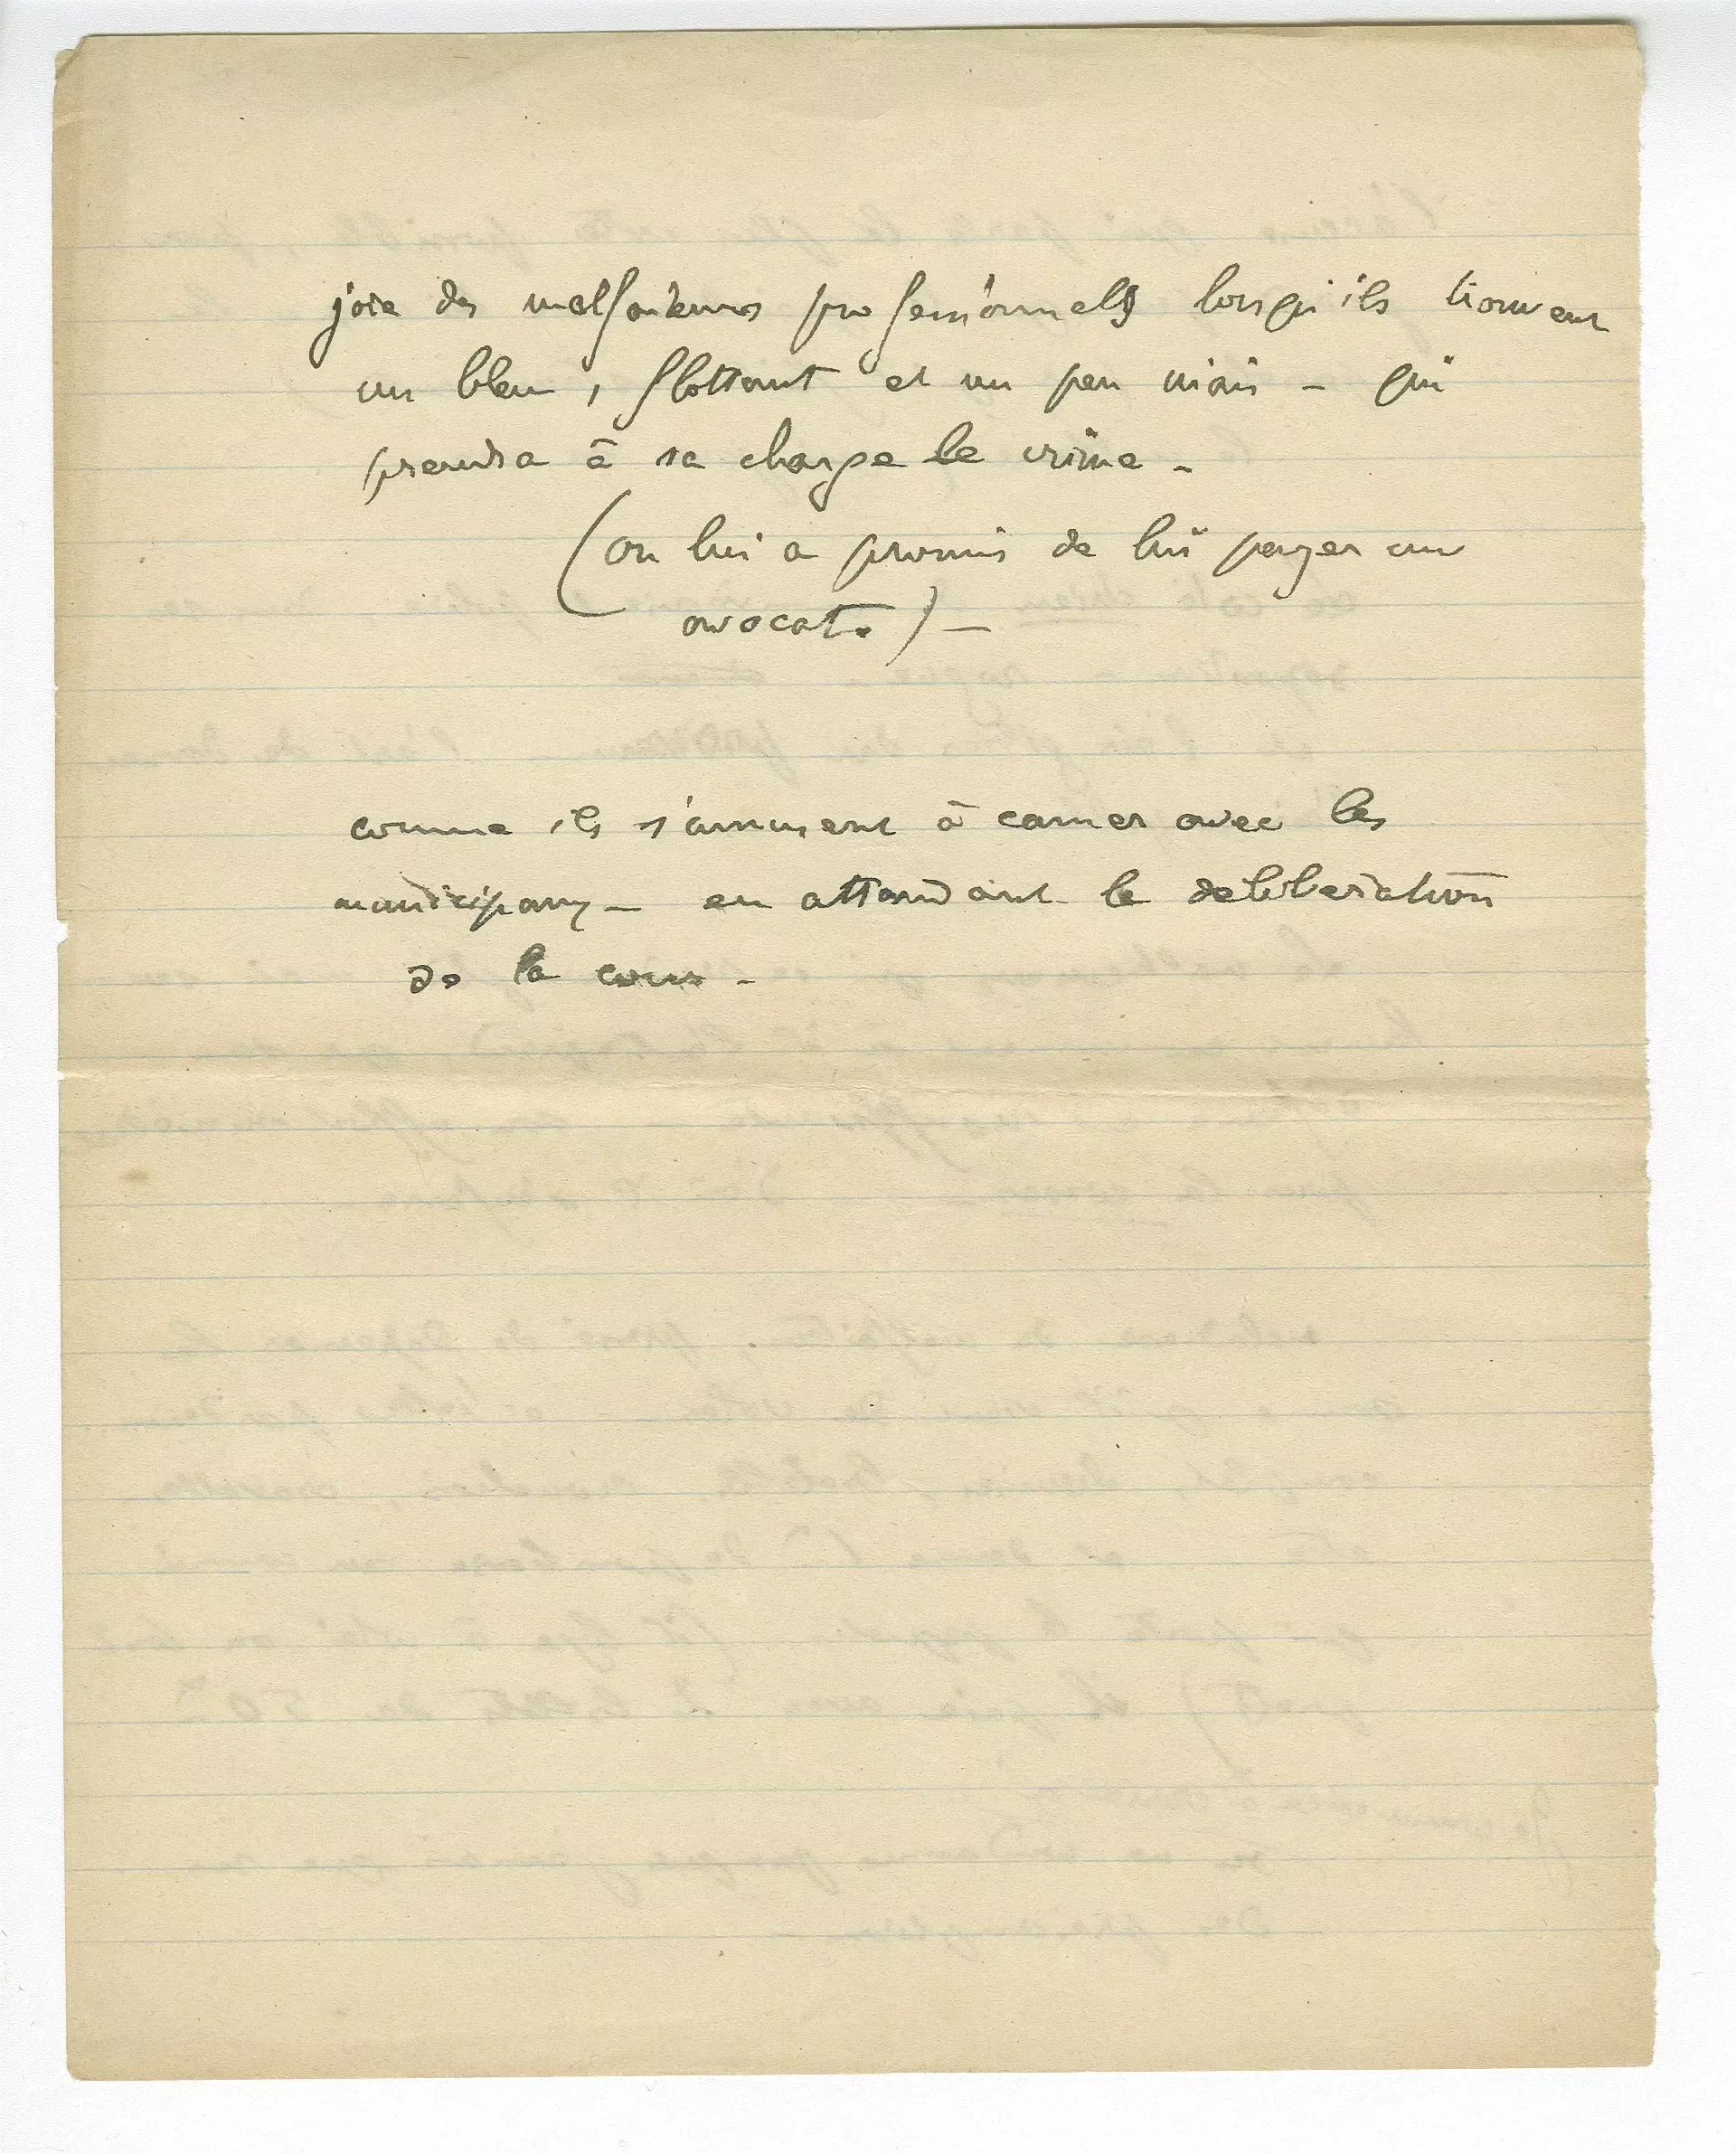 joie des malfaiteurs professionnels lorsqu'ils trouvent
un bleu, flottant et un peu niais - qui
prendra à sa charge le crime -
(on lui a promis de lui payer un
avocat.) -
comme ils s'amusent à causer avec les
municipaux - en attendant le deliberation
de la cour -